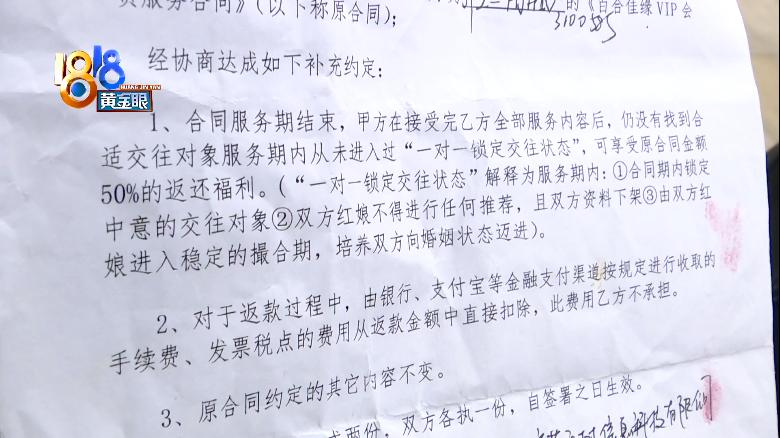 员服务合同》(以下称原合同);
的《百合佳缘VIP会
3100505
经协商达成如下补充约定:
1818
HUANG JIN YAN
黄金眼
1、合同服务期结束,甲方在接受完乙方全部服务内容后,仍没有找到合
适交往对象服务期内从未进入过“一对一锁定交往状态”,可享受原合同金额
50%的返还福利。(“一对一锁定交往状态”解释为服务期内:①合同期内锁定
中意的交往对象②双方红娘不得进行任何推荐,且双方资料下架③由双方红
娘进入稳定的撮合期,培养双方向婚姻状态迈进)。
2、对于返款过程中,由银行、支付宝等金融支付渠道按规定进行收取的
手续费、发票税点的费用从返款金额中直接扣除,此费用乙方不承担。
3、原合同约定的其它内容不变。
式两份,双方各执一份,自签署之日生效。
信息科技有限公司